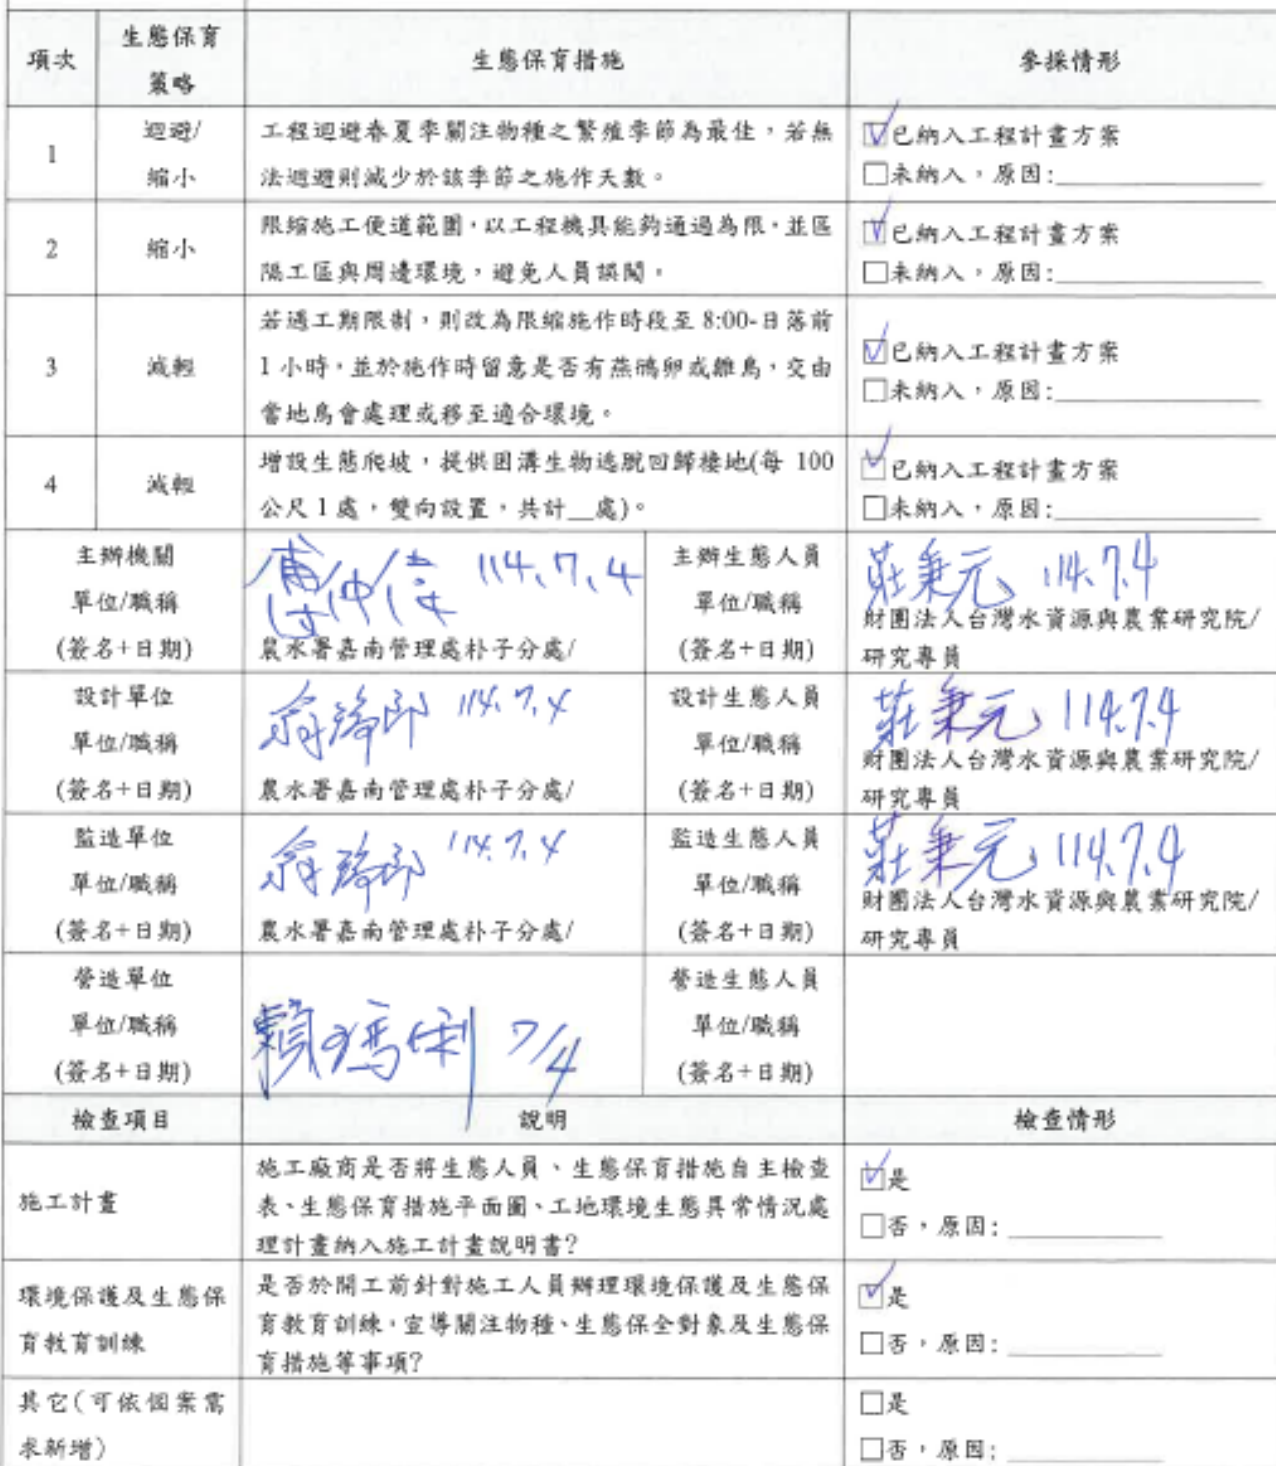 項次 生態保育策略 生態保育措施 參採情形
1 迴避/縮小
工程迴避春夏季關注物種之繁殖季節為最佳，若無
法迴避則減少於該季節之施作天數。
☑已納入工程計畫方案
□未納入，原因:
2 縮小
限縮施工便道範圍，以工程機具能夠通過為限，並區
隔工區與周邊環境，避免人員誤闖。
☑已納入工程計畫方案
□未納入，原因:
3 減輕
若遇工期限制，則改為限縮施作時段至 8:00-日落前
1 小時，並於施作時留意是否有燕鴴卵或雛鳥，交由
當地鳥會處理或移至適合環境。
☑已納入工程計畫方案
□未納入，原因:
4 減輕
增設生態爬坡，提供困溝生物逃脫回歸棲地(每 100
公尺 1 處，雙向設置，共計__處)。
☑已納入工程計畫方案
□未納入，原因:
主辦機關
單位/職稱
(簽名+日期)
114.7.4
農水署嘉南管理處朴子分處/
主辦生態人員
單位/職稱
(簽名+日期)
莊秉元 114.7.4
財團法人台灣水資源與農業研究院/
研究專員
設計單位
單位/職稱
(簽名+日期)
114.7.4
農水署嘉南管理處朴子分處/
設計生態人員
單位/職稱
(簽名+日期)
莊秉元 114.7.4
財團法人台灣水資源與農業研究院/
研究專員
監造單位
單位/職稱
(簽名+日期)
114.7.4
農水署嘉南管理處朴子分處/
監造生態人員
單位/職稱
(簽名+日期)
莊秉元 114.7.4
財團法人台灣水資源與農業研究院/
研究專員
營造單位
單位/職稱
(簽名+日期)
7/4
營造生態人員
單位/職稱
(簽名+日期)
檢查項目 說明 檢查情形
施工計畫
施工廠商是否將生態人員、生態保育措施自主檢查
表、生態保育措施平面圖、工地環境生態異常情況處
理計畫納入施工計畫說明書?
☑是
□否，原因:
環境保護及生態保
育教育訓練
是否於開工前針對施工人員辦理環境保護及生態保
育教育訓練，宣導關注物種、生態保全對象及生態保
育措施等事項?
☑是
□否，原因:
其它(可依個案需
求新增)
□是
□否，原因: